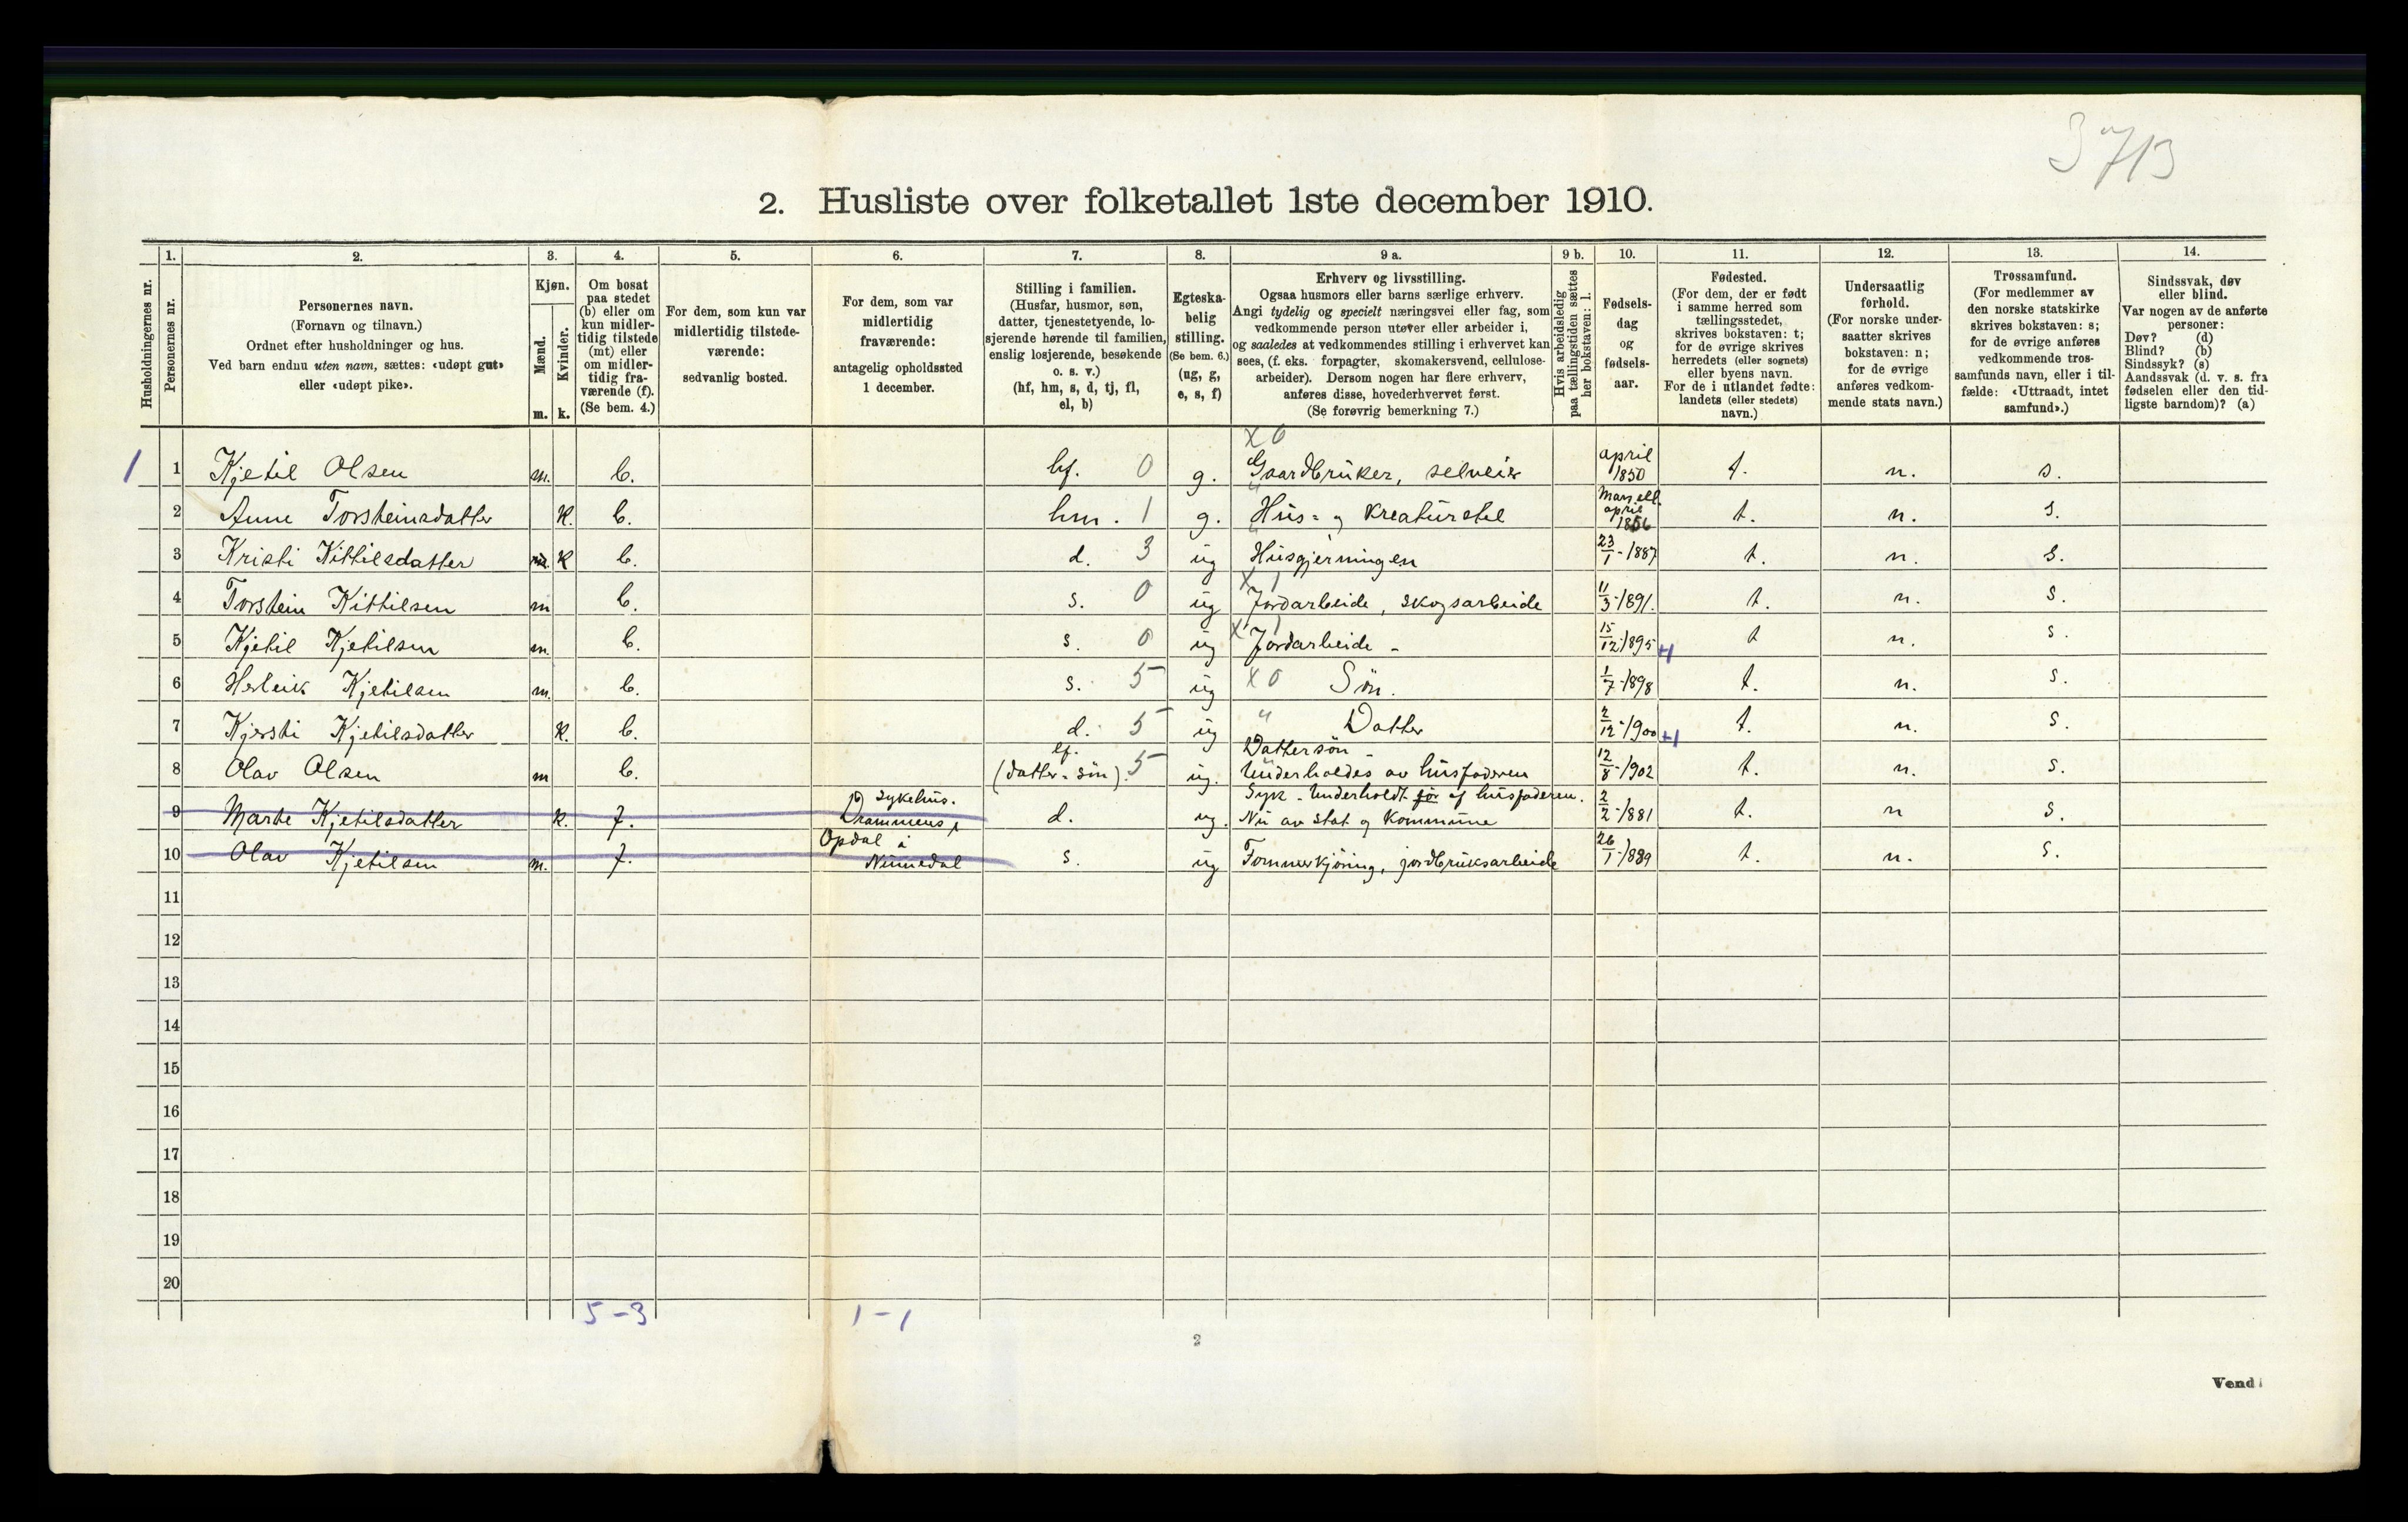 3713
2. Husliste over folketallet 1ste december 1910.
Husholdningernes nr.
1.
Personernes nr.
2.
Personernes navn.
(Fornavn og tilnavn.)
Ordnet efter husholdninger og hus.
Ved barn endnu uten navn, sættes: «udøpt gut»
eller «udøpt pike».
3.
Kjøn.
Mænd.
Kvinder.
m. k.
4.
Om bosat
paa stedet
(b) eller om
kun midler-
tidig tilstede
(mt) eller
om midler-
tidig fra-
værende (f).
(Se bem. 4.)
5.
For dem, som kun var
midlertidig tilstede-
værende:
sedvanlig bosted.
6.
For dem, som var
midlertidig
fraværende:
antagelig opholdssted
1 december.
7.
Stilling i familien.
(Husfar, husmor, søn,
datter, tjenestetyende, lo-
sjerende hørende til familien,
enslig losjerende, besøkende
o. s. v.)
(hf, hm, s, d, tj, fl,
el, b)
8.
Egteska-
belig
stilling.
(Se bem. 6.)
(ug, g,
e, s, f)
9 a.
Erhverv og livsstilling.
Ogsaa husmors eller barns særlige erhverv.
Angi tydelig og specielt næringsvei eller fag, som
vedkommende person utøver eller arbeider i,
og saaledes at vedkommendes stilling i erhvervet kan
sees, (f. eks. forpagter, skomakersvend, cellulose-
arbeider). Dersom nogen har flere erhverv,
anføres disse, hovederhvervet først.
(Se forøvrig bemerkning 7.)
9 b.
Hvis arbeidsledig
paa tællingstiden sættes
her bokstaven: l.
10.
Fødsels-
dag
og
fødsels-
aar.
11.
Fødested.
(For dem, der er født
i samme herred som
tællingsstedet,
skrives bokstaven: t;
for de øvrige skrives
herredets (eller sognets)
eller byens navn.
For de i utlandet fødte:
landets (eller stedets)
navn.)
12.
Undersaatlig
forhold.
(For norske under-
saatter skrives
bokstaven: n;
for de øvrige
anføres vedkom-
mende stats navn.)
13.
Trossamfund.
(For medlemmer av
den norske statskirke
skrives bokstaven: s;
for de øvrige anføres
vedkommende tros-
samfunds navn, eller i til-
fælde: «Uttraadt, intet
samfund».)
14.
Sindssvak, døv
eller blind.
Var nogen av de anførte
personer:
Døv? (d)
Blind? (b)
Sindssyk? (s)
Aandssvak (d. v. s. fra
fødselen eller den tid-
ligste barndom)? (a)
1 1 Kjetil Olsen m. b. hf. 0 g. x 0 Gaardbruker, selveier april 1850 t. n. s.
2 Anne Torsteinsdatter k. b. hm. 1 g. " Hus- og kreaturstel Mars ell. april 1856 t. n. s.
3 Kristi Kittilsdatter k b. d. 3 ug " Husgjerningen 23/1-1887 t. n. s.
4 Torstein Kittilsen m b. s. 0 ug x 1 Jordarbeide, skogsarbeide 11/3-1891. t. n. s.
5 Kjetil Kjetilsen m. b. s. 0 ug x 1 Jordarbeide - 15/12-1895 +1 t n. s.
6 Herleik Kjetilsen m. b. s. 5 ug x 0 Søn. 1/7-1898 t. n. s.
7 Kjersti Kjetilsdatter k. b. d. 5 ug " Datter 2/12-1900 +1 t. n. s.
8 Olav Olsen m b. (datter-søn). 5 ug. Dattersøn - Underholdes av husfaderen 12/8-1902 t. n. s.
9 Marte Kjetilsdatter k. f. Drammens sykehus. d. ug. Syk - Underholdt før af husfaderen. Nu av stat og kommune 2/2-1881 t. n s.
10 Olav Kjetilsen m. f. Opdal i Numedal s. ug Tømmerkjøring, jordbruksarbeide 26/1-1889 t. n. s.
11
12
13
14
15
16
17
18
19
20
5-3 1-1
2
Vend!